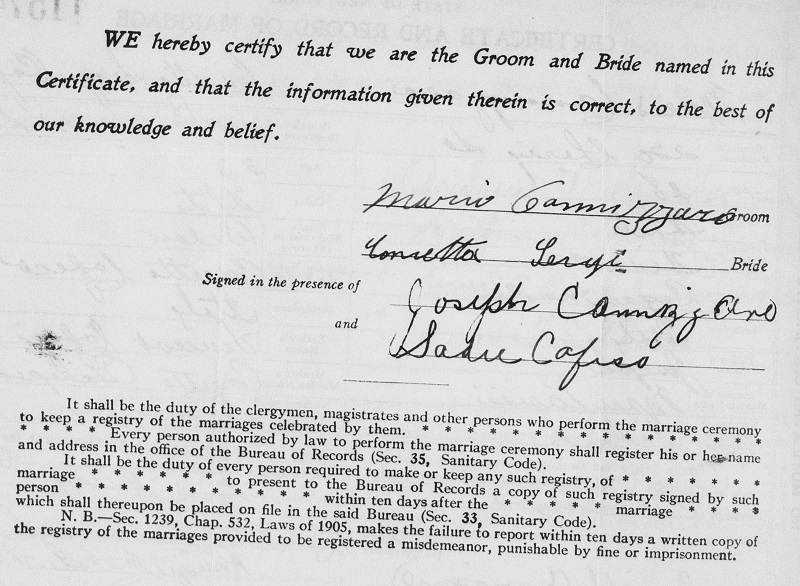 WE hereby certify that we are the Groom and Bride named in this
Certificate, and that the information given therein is correct, to the best of
our knowledge and belief.
Mario Cannizzaro Groom
Concetta Bride
Signed in the presence of Joseph Cannizzaro
and Sadie Cafiso
It shall be the duty of the clergymen, magistrates and other persons who perform the marriage ceremony
to keep a registry of the marriages celebrated by them. * * * * * * * * * * * * * *
* * * * Every person authorized by law to perform the marriage ceremony shall register his or her name
and address in the office of the Bureau of Records (Sec. 35, Sanitary Code).
It shall be the duty of every person required to make or keep any such registry, of * * * * * * *
marriage * * * * * * to present to the Bureau of Records a copy of such registry signed by such
person * * * * * * * * * * * within ten days after the * * * * * marriage * * * *
which shall thereupon be placed on file in the said Bureau (Sec. 33, Sanitary Code).
N. B.—Sec. 1239, Chap. 532, Laws of 1905, makes the failure to report within ten days a written copy of
the registry of the marriages provided to be registered a misdemeanor, punishable by fine or imprisonment.